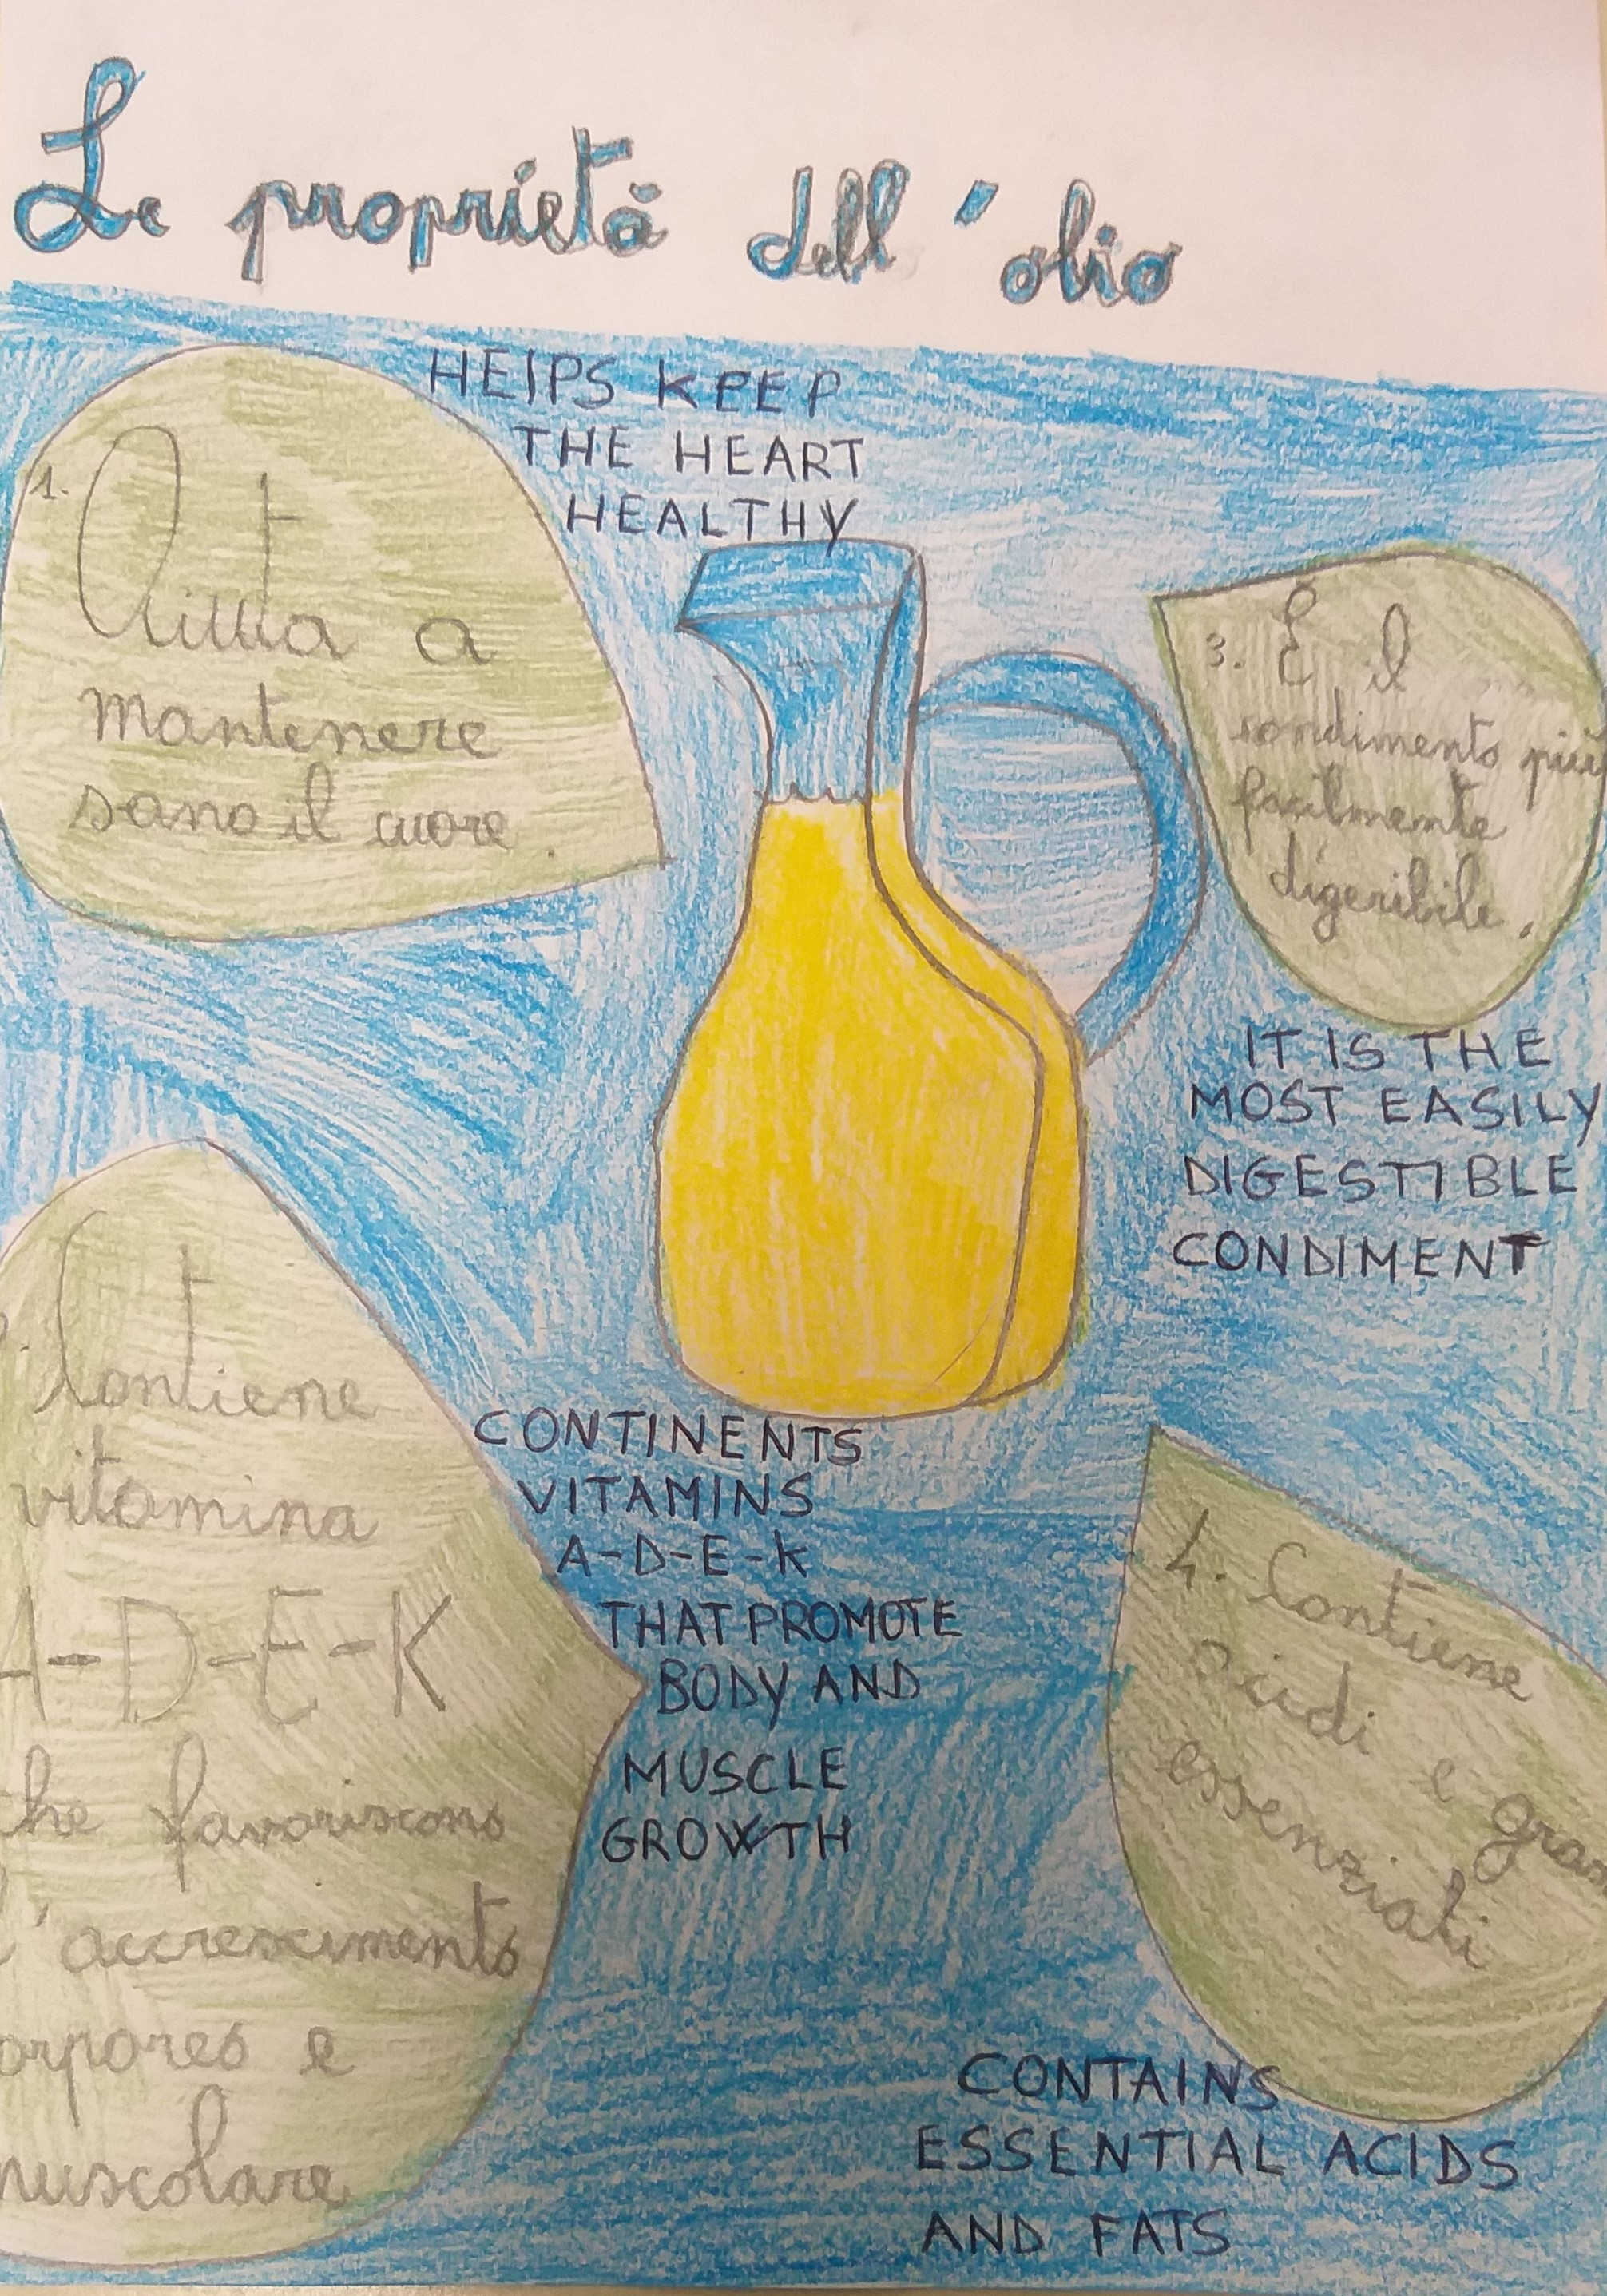 Le proprietà dell'olio
HElPS KEEP
THE HEART
HEALTHY
1. Aiuta a
mantenere
sano il cuore.
3. È il
condimento più
facilmente
digeribile.
IT IS THE
MOST EASILY
DIGESTIBLE
CONDIMENT
Contiene
vitamina
A-D-E-K
che favoriscono
l'accrescimento
orporeo e
muscolare
CONTINENTS
VITAMINS
A-D-E-K
THAT PROMOTE
BODY AND
MUSCLE
GROWTH
4. Contiene
acidi e gras
essenziali
CONTAINS
ESSENTIAL ACIDS
AND FATS